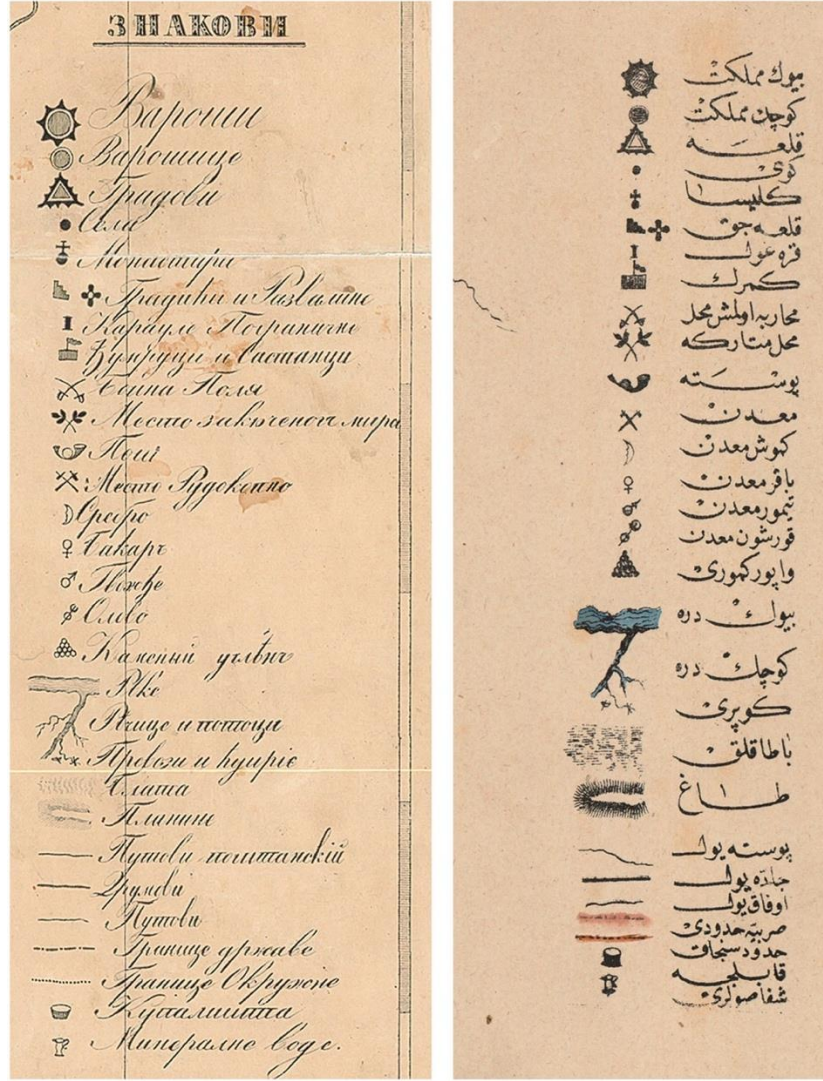 ЗНАКОВИ
Вароши
Варошице
Градови
Села
Монастири
Градићи и Развалине
Карауле Пограничне
Ђумруци и Састанци
Бойна Поля
Место закљученог мира
Место Рудокопно
Сребро
Бакаръ
Гвожђе
Олово
Каменый угљѣнъ
Рѣке
Рѣчице и потоци
Превози и ћупріе
Блата
Планине
Путови поштанскій
Друмови
Путови
Границе државе
Границе Окружне
Купалишта
Минералне воде.
بيوك مملكت
كوچك مملكت
قلعه
كوى
كليسا
قلعه جق
قره غول
كمرك
محاربه اولمش محل
محل متاركه
پوسته
معدن
كموش معدن
باقر معدن
تيمور معدن
قورشون معدن
واپور كمورى
بيوك دره
كوچك دره
كوپرى
باطاقلق
طاغ
پوسته يول
جادّه يول
اوفاق يول
صربيه حدودى
حدود سنجاق
قابلجه
شفا صولرى